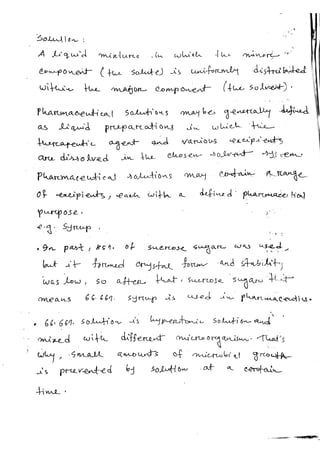 Solution:
A liquid mixture in which the minor
component (the solute) is uniformly distributed
within the major component (the solvent).
Pharmaceutical Solutions may be generally defined
as liquid preparations in which the
therapeutic agent and various excipients
are dissolved in the chosen solvent system.
Pharmaceutical solutions may contain a range
of excipients, each with a defined pharmaceutical
purpose.
e.g. Syrup.
• In past, 85% of sucrose sugar was used,
but it formed crystal form and stability
was low, so after that, sucrose sugar that
means 66.66%. syrup is used in pharmaceutics.
• 66.66% solution is hypertonic solution and
mixed with different microorganism. That's
why, small amounts of microbial growth
is prevented by solution at a certain
time.